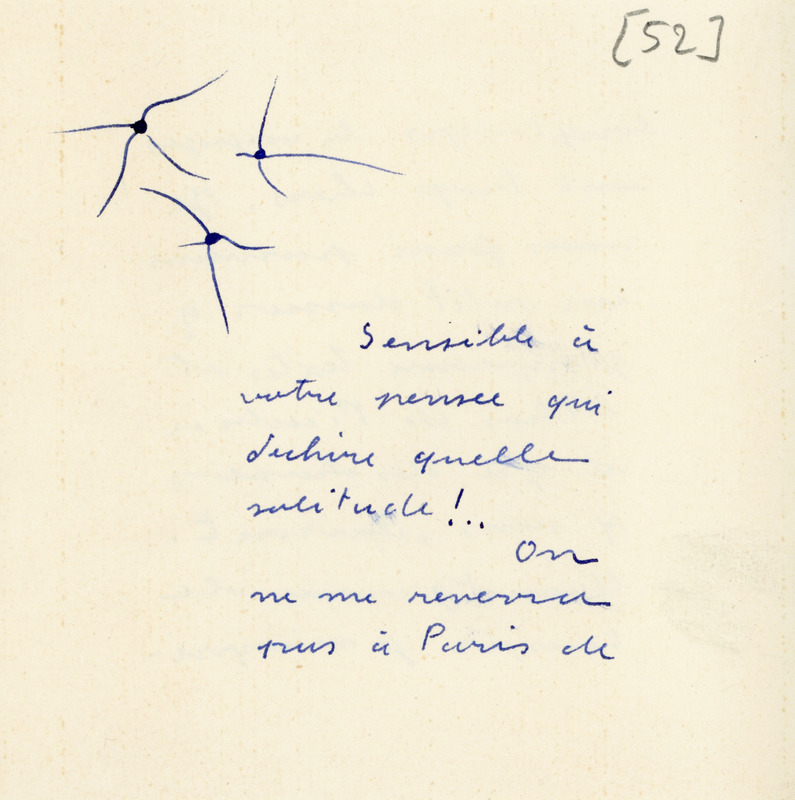 [52]
Sensible à
votre pensée qui
déchire quelle
solitude !..
On
ne me reverra
pas à Paris de